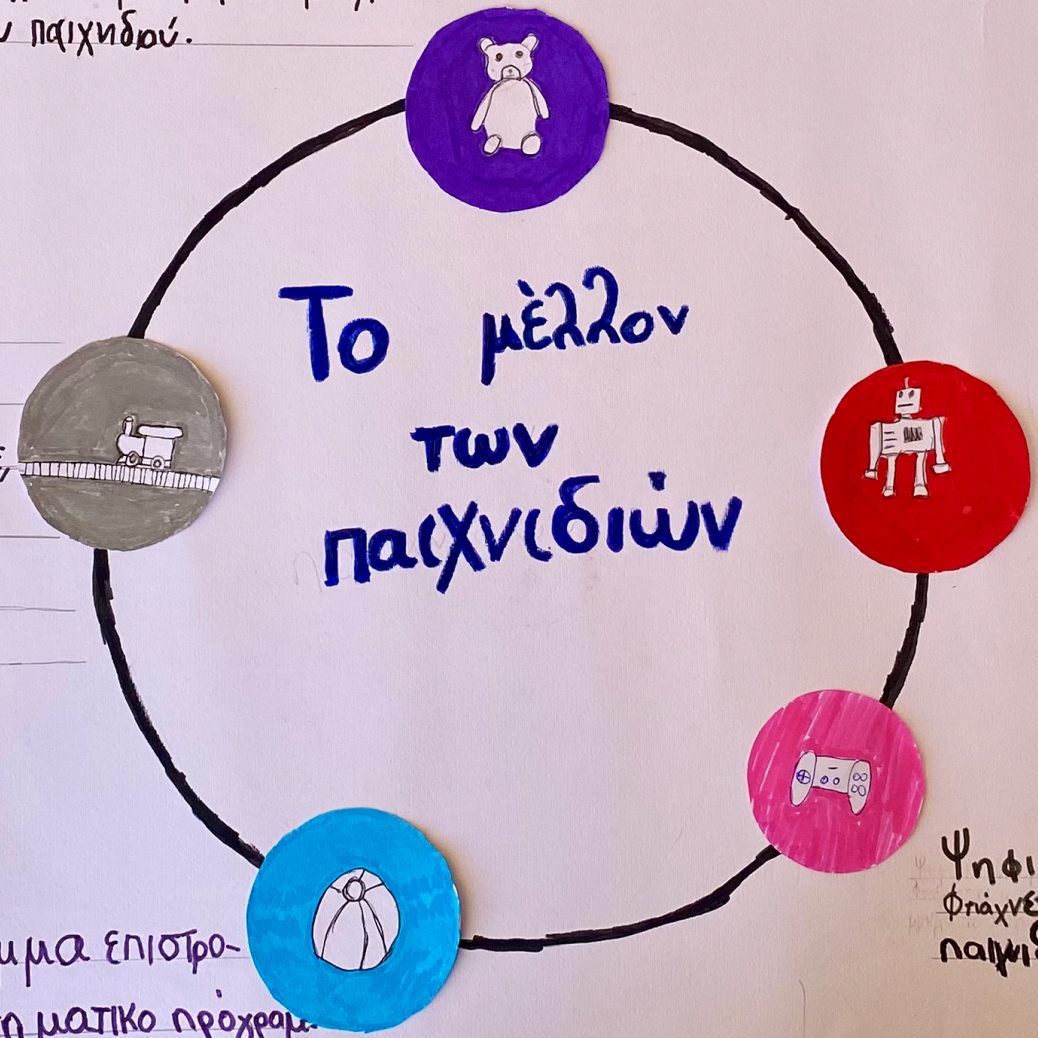 παιχηδιού.
Το μὲλλον
των
παιχνιδιών
Ψηφι
Φτιάχνε
παιχνιδ
μμα επιστρο-
ηματικο πρόγραμ